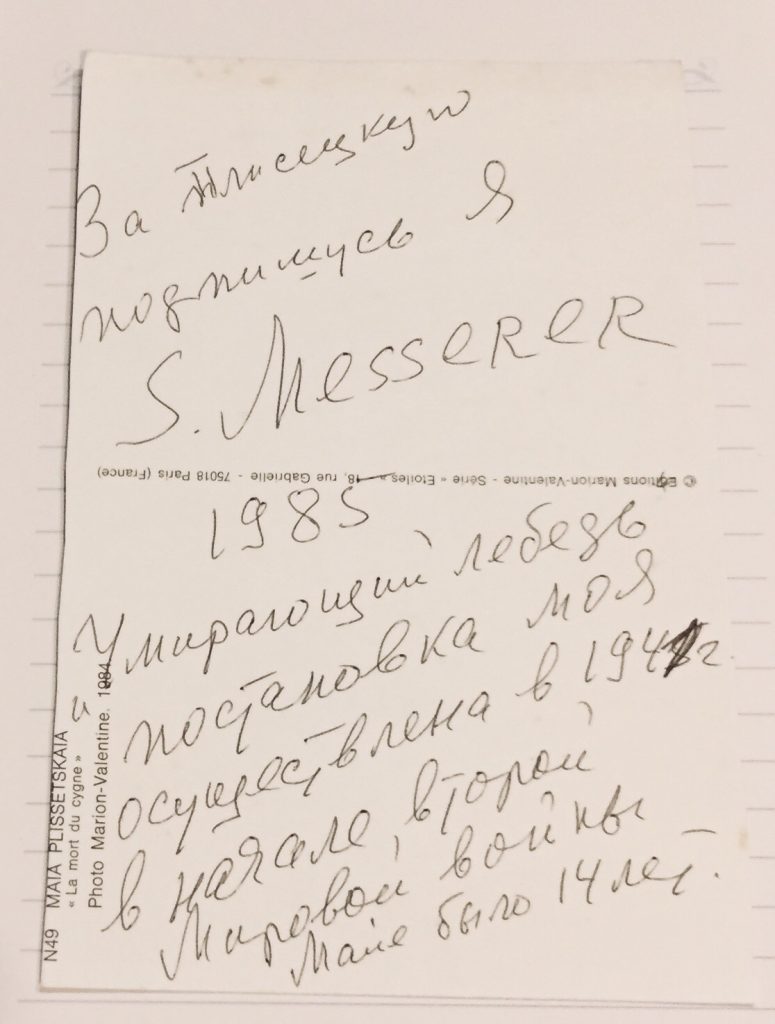 За Плисецкую
подпишусь я
S. Messerer
© Editions Marion-Valentine - Série « Etoiles » 18, rue Gabrielle - 75018 Paris (France)
1985
"Умирающий лебедь
постановка моя
осуществлена в 1941г.
в начале второй
Мировой войны
Майе было 14 лет.
N49 MAIA PLISSETSKAIA
« La mort du cygne »
Photo Marion-Valentine. 1984